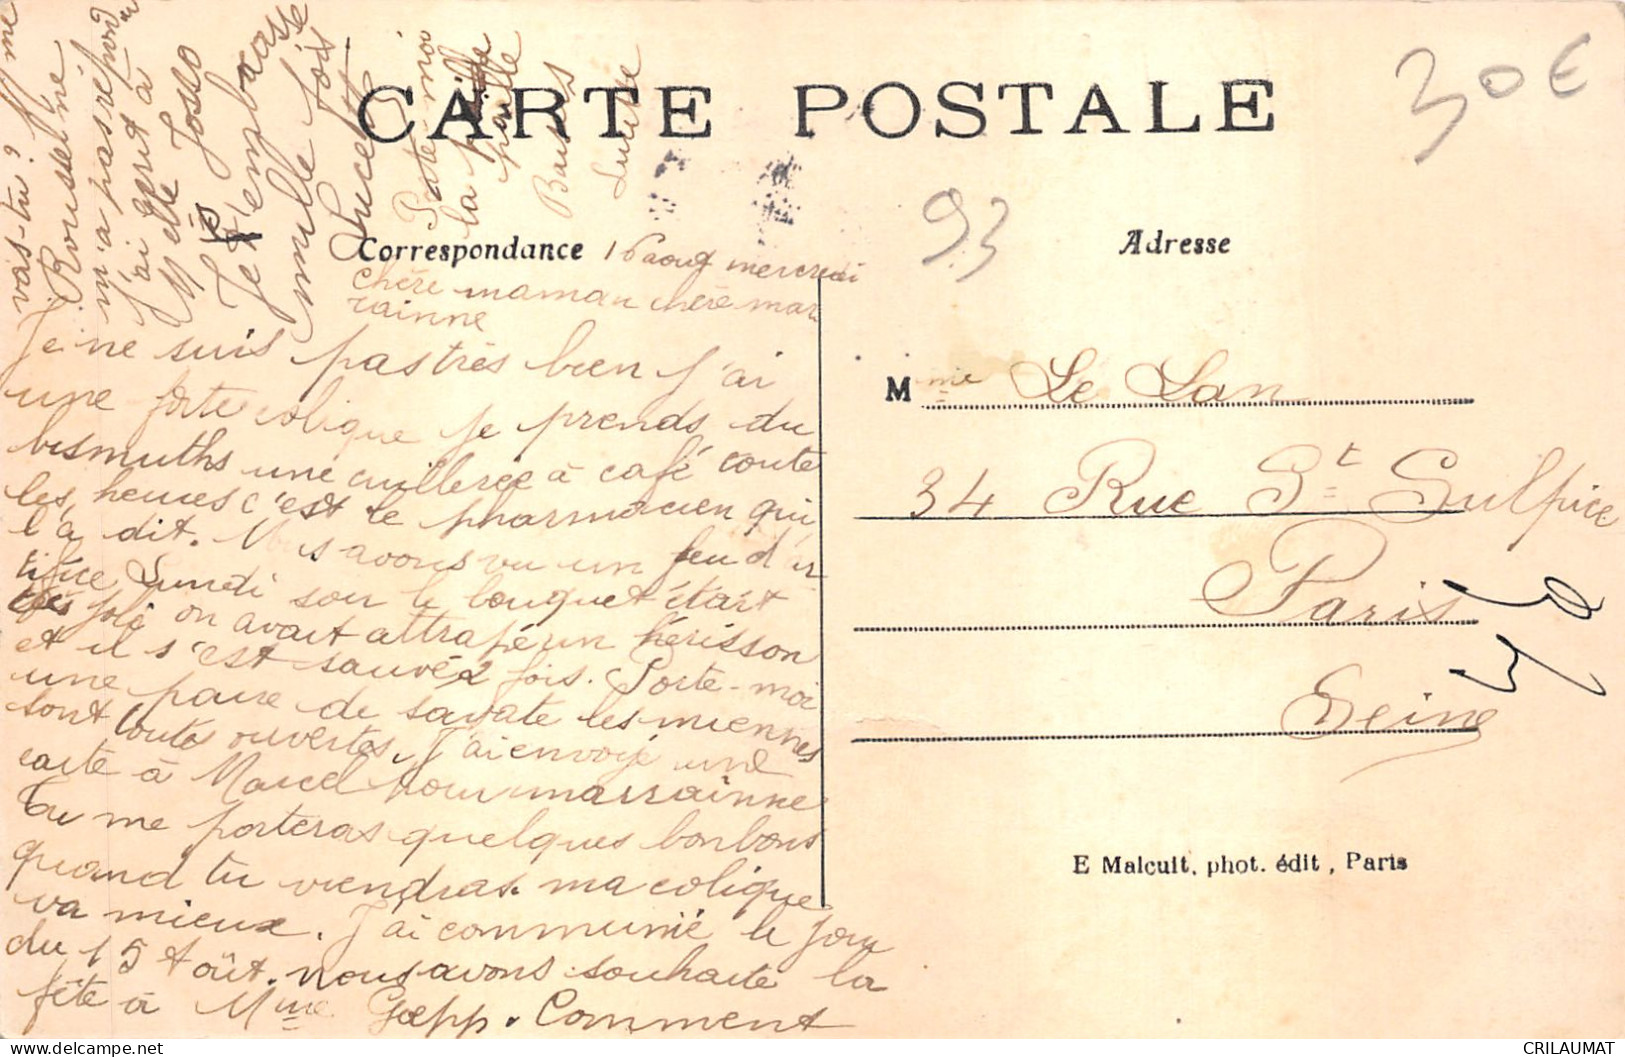 CARTE POSTALE
30€
93
Correspondance
Adresse
16 aout mercredi
chère maman chère mar
rainne
Je ne suis pas très bien j'ai
une forte colique je prends du
bismuths une cuillerée à café toute
les heures c'est le pharmacien qui
l'a dit. Nous avons vu un feu d'ar
tifice Lundi soir le bouquet était
très joli on avait attrapé un hérisson
et il s'est sauvé 2 fois. Porte-moi
une paire de savate les miennes
sont toutes ouvertes. J'ai envoyé une
carte à Marcel pour marrainne
Tu me porteras quelques bonbons
quand tu viendras. ma colique
va mieux. J'ai communié le jour
du 15 Août. nous avons souhaité la
fête à Mme Goepp. Comment
vas-tu? Mme
Rousseliné
m'a pas répondu
j'ai écrit à
Melle Josso
Je t'embrasse
mille fois
Lucette
Porte moi
la
paille
Baisers
Lucette
Mme Le Lan
34 Rue St Sulpice
Paris
Seine
E Malcuit, phot. édit, Paris
CRILAUMAT